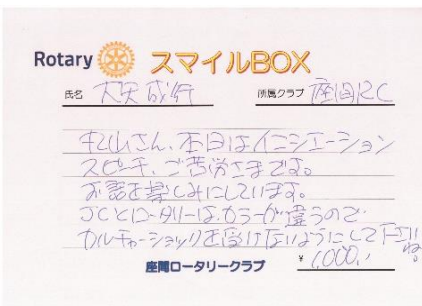 Rotary スマイルBOX
氏名 大矢 所属クラブ 座間RC
丸山さん、本日はイニシエーション
スピーチ、ご苦労さまです。
お話を楽しみにしています。
JCとロータリーは、カラーが違うので
カルチャーショックを受けないようにして下さいね。
座間ロータリークラブ ¥1,000.-